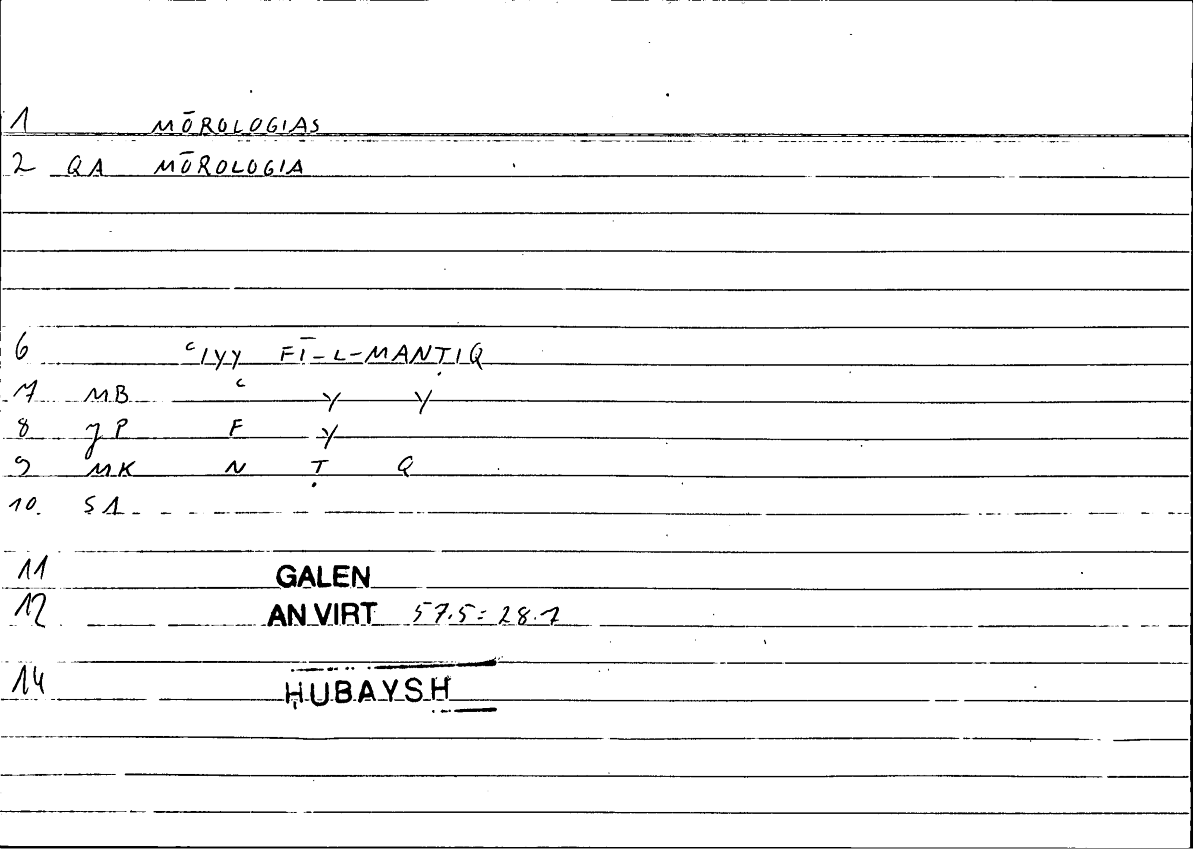 1 MŌROLOGIAS
2 QA MŌROLOGIA
6 ʿIYY FĪ-L-MANṬIQ
7 MB ʿ Y Y
8 JP F Y
9 MK N Ṭ Q
10. SA
11 GALEN
12 AN VIRT 57.5 = 28.1
14 ḤUBAYSH